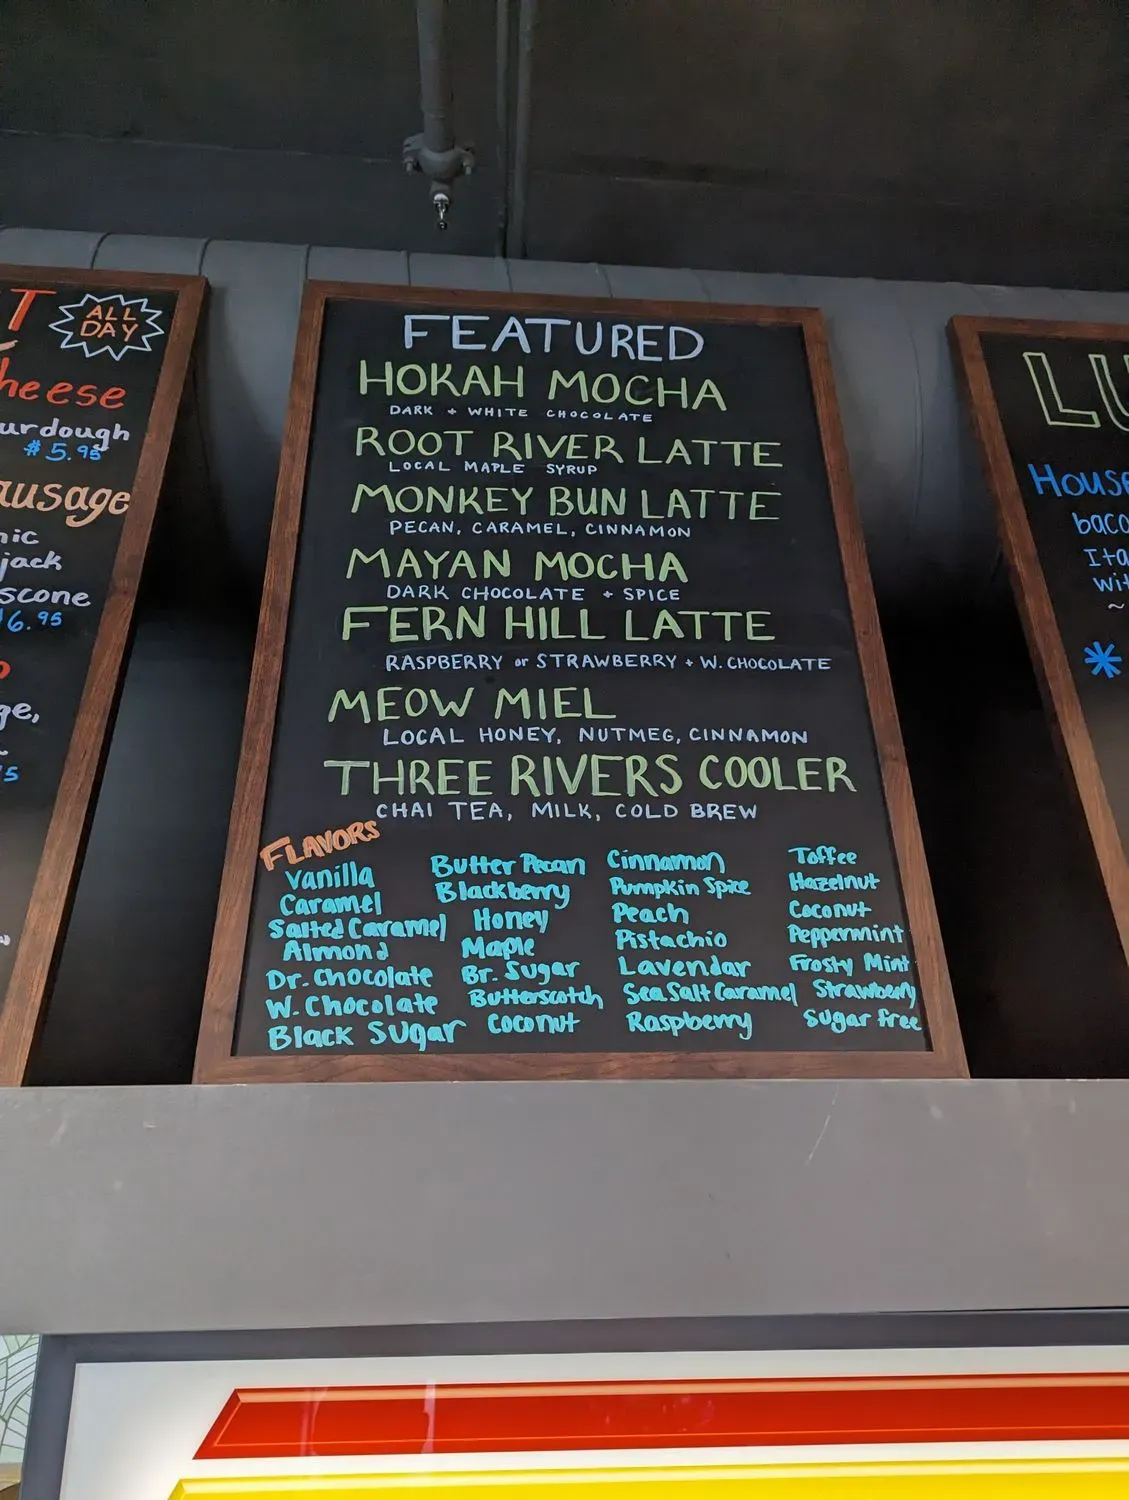 T
ALL
DAY
heese
urdough
$5.95
ausage
nic
jack
scone
6.95
ge,
5
FEATURED
HOKAH MOCHA
DARK + WHITE CHOCOLATE
ROOT RIVER LATTE
LOCAL MAPLE SYRUP
MONKEY BUN LATTE
PECAN, CARAMEL, CINNAMON
MAYAN MOCHA
DARK CHOCOLATE + SPICE
FERN HILL LATTE
RASPBERRY or STRAWBERRY + W. CHOCOLATE
MEOW MIEL
LOCAL HONEY, NUTMEG, CINNAMON
THREE RIVERS COOLER
CHAI TEA, MILK, COLD BREW
FLAVORS
Vanilla
Caramel
Salted Caramel
Almond
Dr. Chocolate
W. Chocolate
Black Sugar
Butter Pecan
Blackberry
Honey
Maple
Br. Sugar
Butterscotch
Coconut
Cinnamon
Pumpkin Spice
Peach
Pistachio
Lavendar
Sea Salt Caramel
Raspberry
Toffee
Hazelnut
Coconut
Peppermint
Frosty Mint
Strawberry
Sugar free
LU
House
baco
Ita
wit